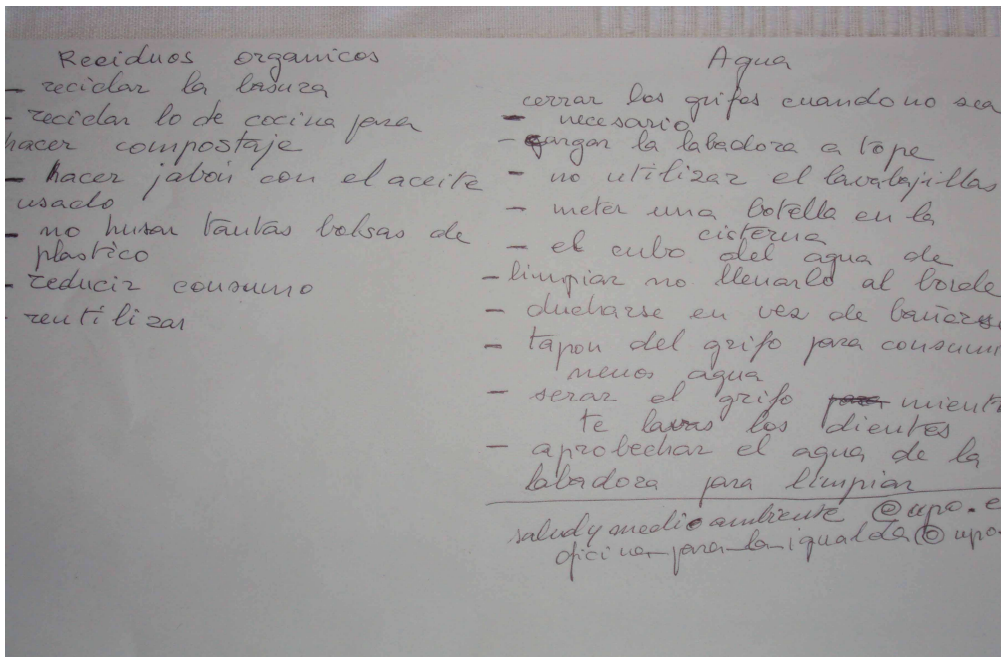 Reciduos organicos
- reciclar la basura
- reciclar lo de cocina para
hacer compostaje
- hacer jabón con el aceite
usado
- no husar tantas bolsas de
plastico
- reducir consumo
- reutilizar
Agua
cerrar los grifos cuando no sea
- necesario
- cargar la labadora a tope
- no utilizar el lavabajillas
- meter una botella en la
cisterna
- el cubo del agua de
- limpiar no llenarlo al borde
- ducharse en vez de bañarse
- tapon del grifo para consumi
menos agua
- serar el grifo mient
te lavas los dientes
- aprobechar el agua de la
labadora para limpiar
salud y medio ambiente @upo.e
oficina_para_la_igualda@upo.